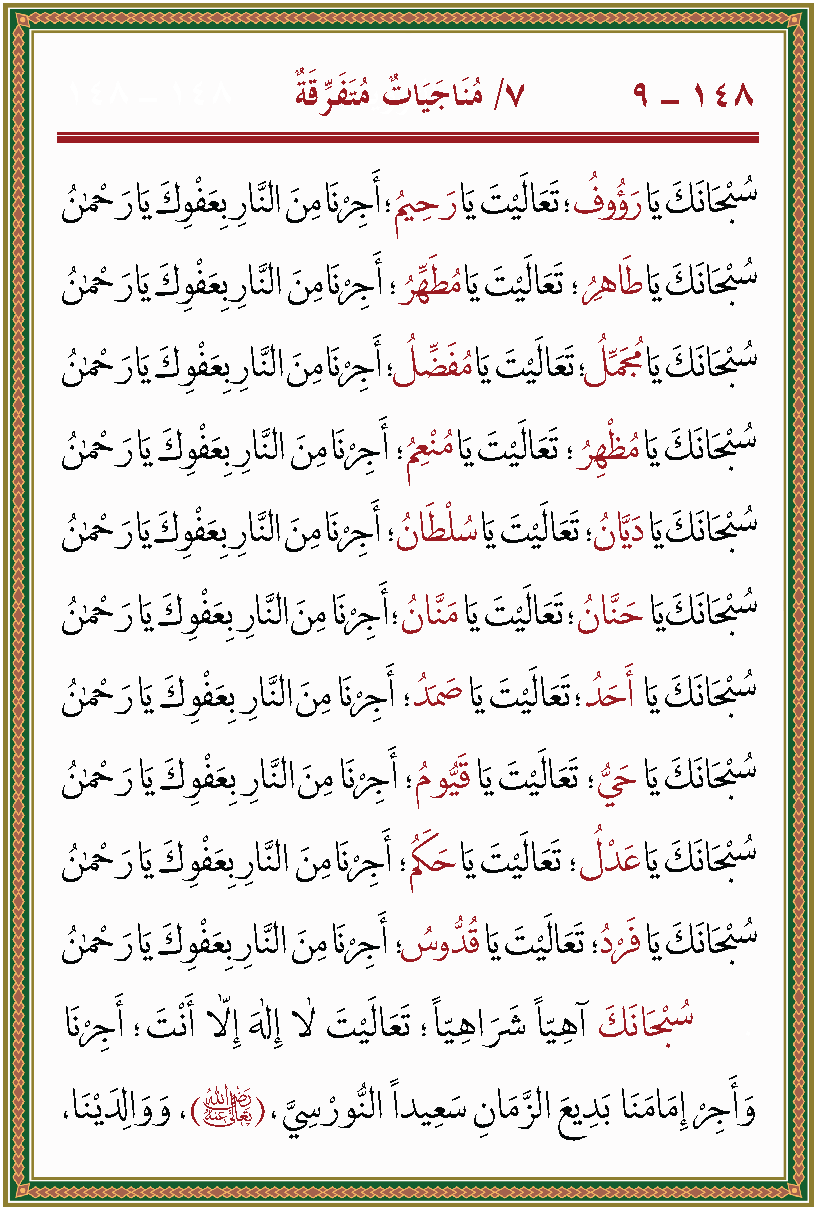 ١٤٨ – ٩ ٧/ مُنَاجَيَاتٌ مُتَفَرِّقَةٌ
سُبْحَانَكَ يَا رَؤُوفُ؛ تَعَالَيْتَ يَا رَحِيمُ؛ أَجِرْنَا مِنَ النَّارِ بِعَفْوِكَ يَا رَحْمٰنُ
سُبْحَانَكَ يَا طَاهِرُ؛ تَعَالَيْتَ يَا مُطَهِّرُ؛ أَجِرْنَا مِنَ النَّارِ بِعَفْوِكَ يَا رَحْمٰنُ
سُبْحَانَكَ يَا مُجَمِّلُ؛ تَعَالَيْتَ يَا مُفَضِّلُ؛ أَجِرْنَا مِنَ النَّارِ بِعَفْوِكَ يَا رَحْمٰنُ
سُبْحَانَكَ يَا مُظْهِرُ؛ تَعَالَيْتَ يَا مُنْعِمُ؛ أَجِرْنَا مِنَ النَّارِ بِعَفْوِكَ يَا رَحْمٰنُ
سُبْحَانَكَ يَا دَيَّانُ؛ تَعَالَيْتَ يَا سُلْطَانُ؛ أَجِرْنَا مِنَ النَّارِ بِعَفْوِكَ يَا رَحْمٰنُ
سُبْحَانَكَ يَا حَنَّانُ؛ تَعَالَيْتَ يَا مَنَّانُ؛ أَجِرْنَا مِنَ النَّارِ بِعَفْوِكَ يَا رَحْمٰنُ
سُبْحَانَكَ يَا أَحَدُ؛ تَعَالَيْتَ يَا صَمَدُ؛ أَجِرْنَا مِنَ النَّارِ بِعَفْوِكَ يَا رَحْمٰنُ
سُبْحَانَكَ يَا حَيُّ؛ تَعَالَيْتَ يَا قَيُّومُ؛ أَجِرْنَا مِنَ النَّارِ بِعَفْوِكَ يَا رَحْمٰنُ
سُبْحَانَكَ يَا عَدْلُ؛ تَعَالَيْتَ يَا حَكَمُ؛ أَجِرْنَا مِنَ النَّارِ بِعَفْوِكَ يَا رَحْمٰنُ
سُبْحَانَكَ يَا فَرْدُ؛ تَعَالَيْتَ يَا قُدُّوسُ؛ أَجِرْنَا مِنَ النَّارِ بِعَفْوِكَ يَا رَحْمٰنُ
سُبْحَانَكَ آهِيّاً شَرَاهِيّاً ؛ تَعَالَيْتَ لَا إِلٰهَ إِلَّا أَنْتَ ؛ أَجِرْنَا
وَأَجِرْ إِمَامَنَا بَدِيعَ الزَّمَانِ سَعِيداً النُّورْسِيَّ، (رَضِيَ اللهُ تَعَالَى عَنْهُ)، وَوَالِدَيْنَا،